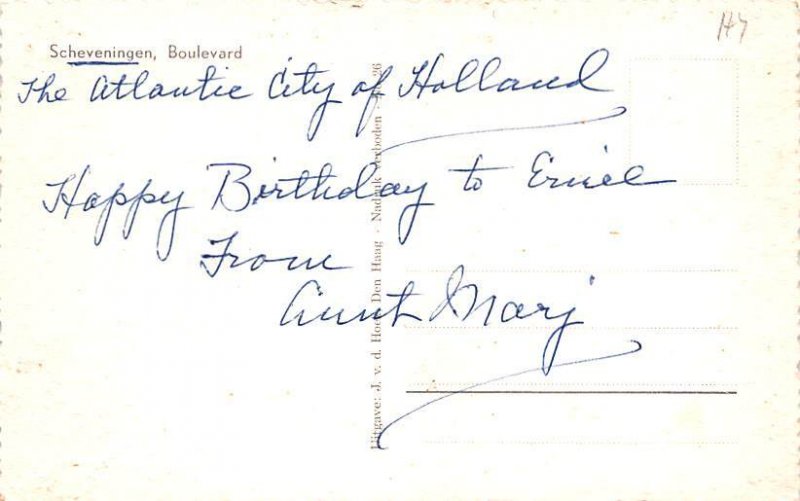 Scheveningen, Boulevard
The Atlantic City of Holland
Happy Birthday to Ernie
From
Aunt Marj
Uitgave: J. v. d. Hoek, Den Haag - Nadruk Verboden - 26
H7